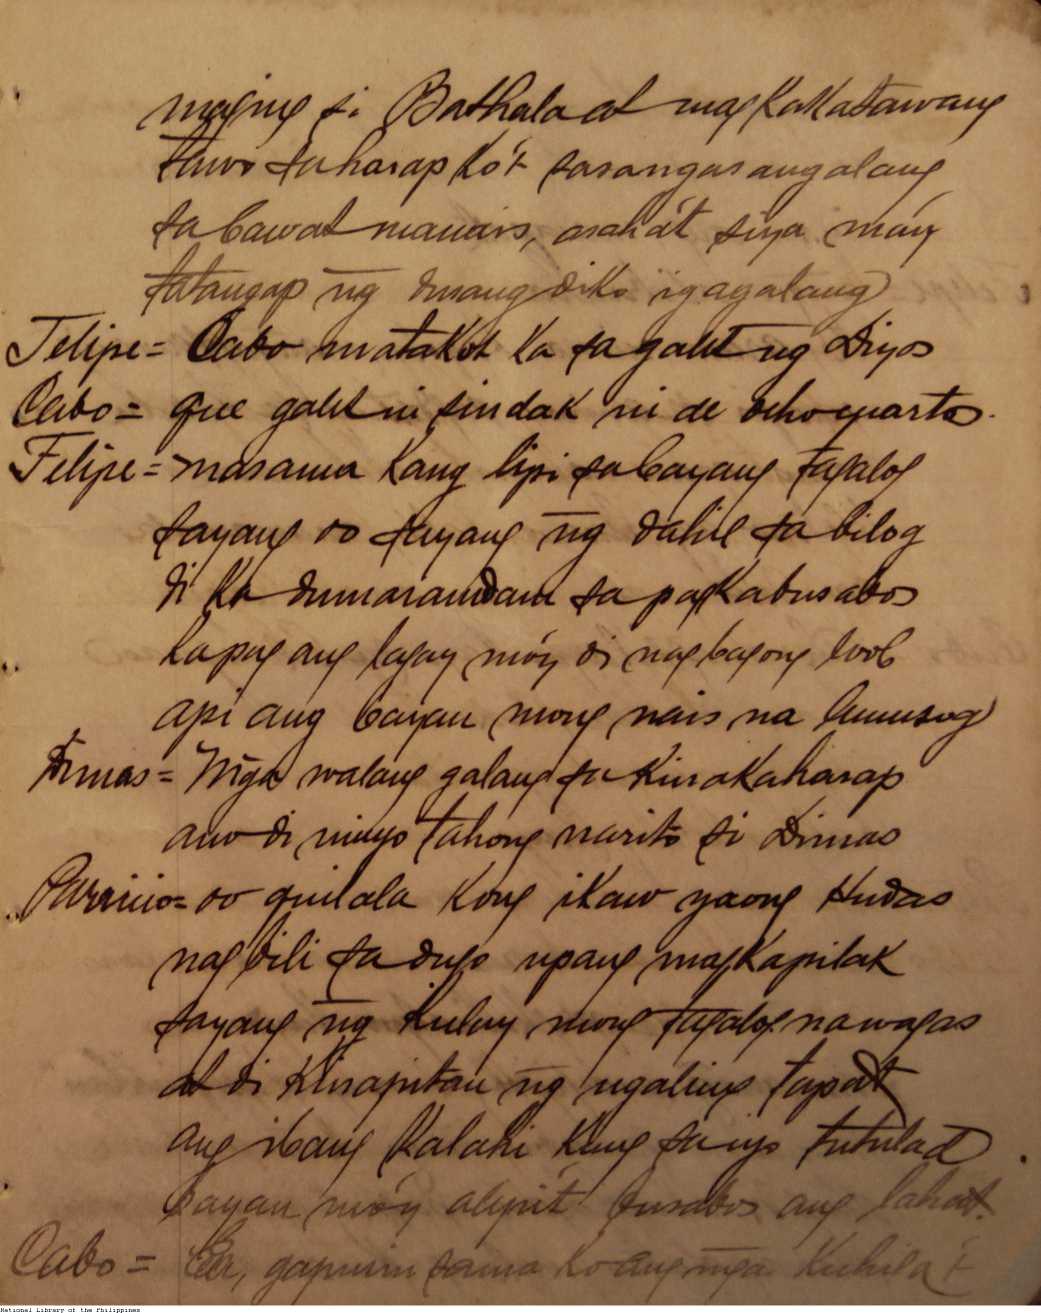 maging si Bathala at magkakatawang
tawo sa harap ko't sasangasangalang
sa bawat manais, asahá't siya máy
tatangap n̄g diko igagalang
Felipe = Cabo matakot ka sa galit ng Diyos
Cabo = que galit ni sindak ni de ocho cuartos.
Felipe = masama kang lipi sa bayang tagalog
sayang oo sayang n̄g dahil sa bilog
di ka dumaramdam sa pagkabusabos
kapag ang lagay móy di nagbagong loob
api ang bayan mong nais na
Dimas = Mga walang galang sa kinakaharap
anu di ninyo tahong narito si Dimas
oo quilala kong ikaw yaong Hudas
nagbili sa dugo upang magkapilak
sayang n̄g kulay mong tagalog na wagas
at di kinapitan n̄g ugaling tapat
ang ibang kalahi kung sa iyo tutulad
bayan móy alipi't busabos ang lahat.
Cabo = Ea, gapusin sama ko ang mga kuhila't
National Library of the Philippines